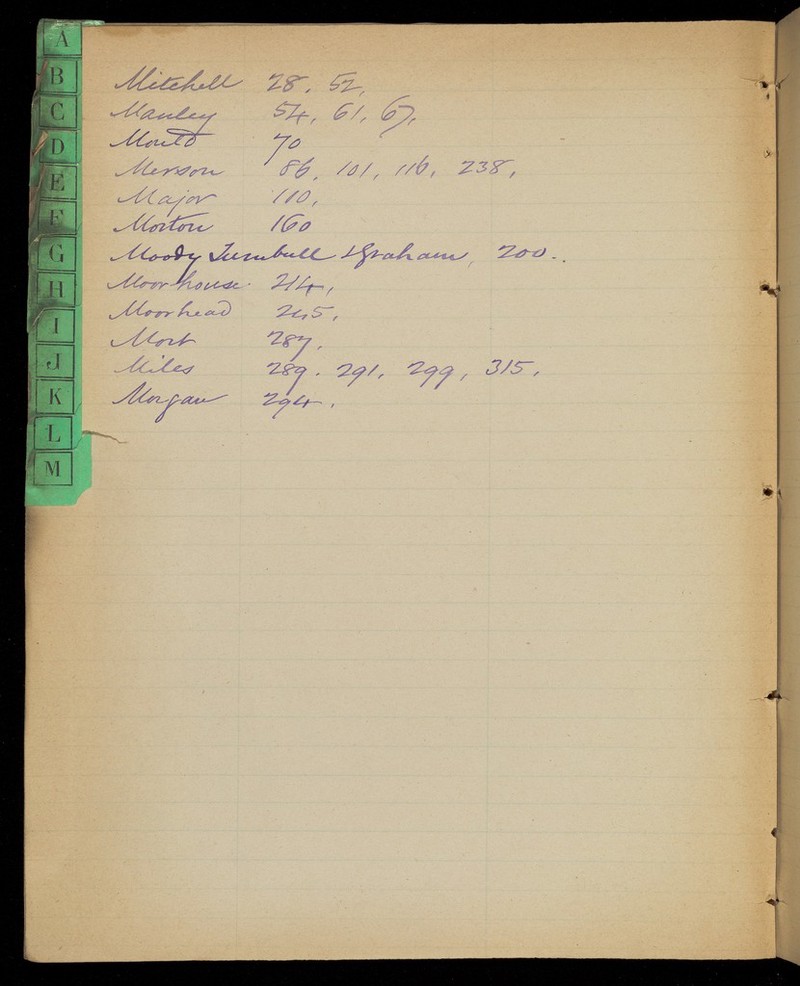 A
B
C
D
E
F
G
H
I
J
K
L
M
Mitchell 28, 52,
Manley 54, 61, 67,
Mould 70
Merson 86, 101, 116, 238,
Major 110,
Morton 160
Moody Turnbull & Graham, 200..
Moorhouse 214,
Moorhead 245,
Mort 287,
Miles 289, 291, 299, 315,
Morgan 294,